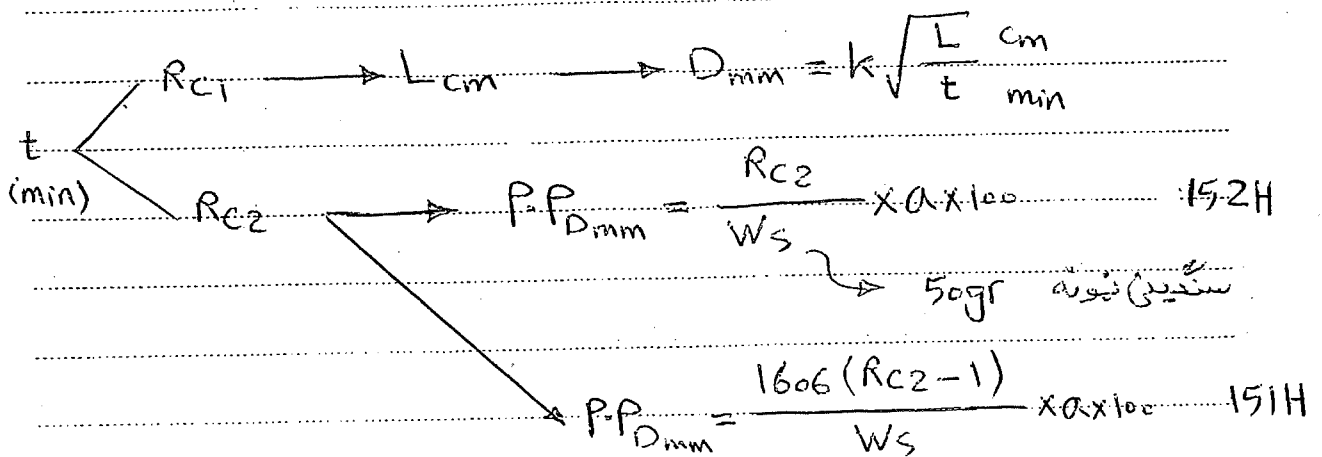 R_C1 → L_cm → D_mm = k √(L/t) cm min
t (min)
R_C2 → P.P_Dmm = R_C2 / W_S × a × 100 152H
50gr سنگینی نیونه
P.P_Dmm = 1606 (R_C2 - 1) / W_S × a × 100 151H